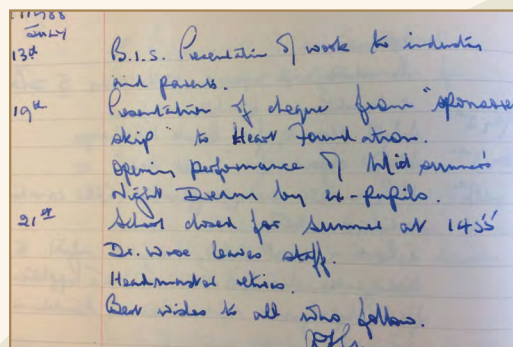 July
13th B.I.S. Presentation of work to industry
and parents.
19th Presentation of cheque from "sponsored
skip" to Heart Foundation.
Opening performance of Midsummer's
Night Dream by ex-pupils.
21st School closed for summer at 1435
Dr. Wroe leaves staff.
Headmaster retires.
Best wishes to all who follow.